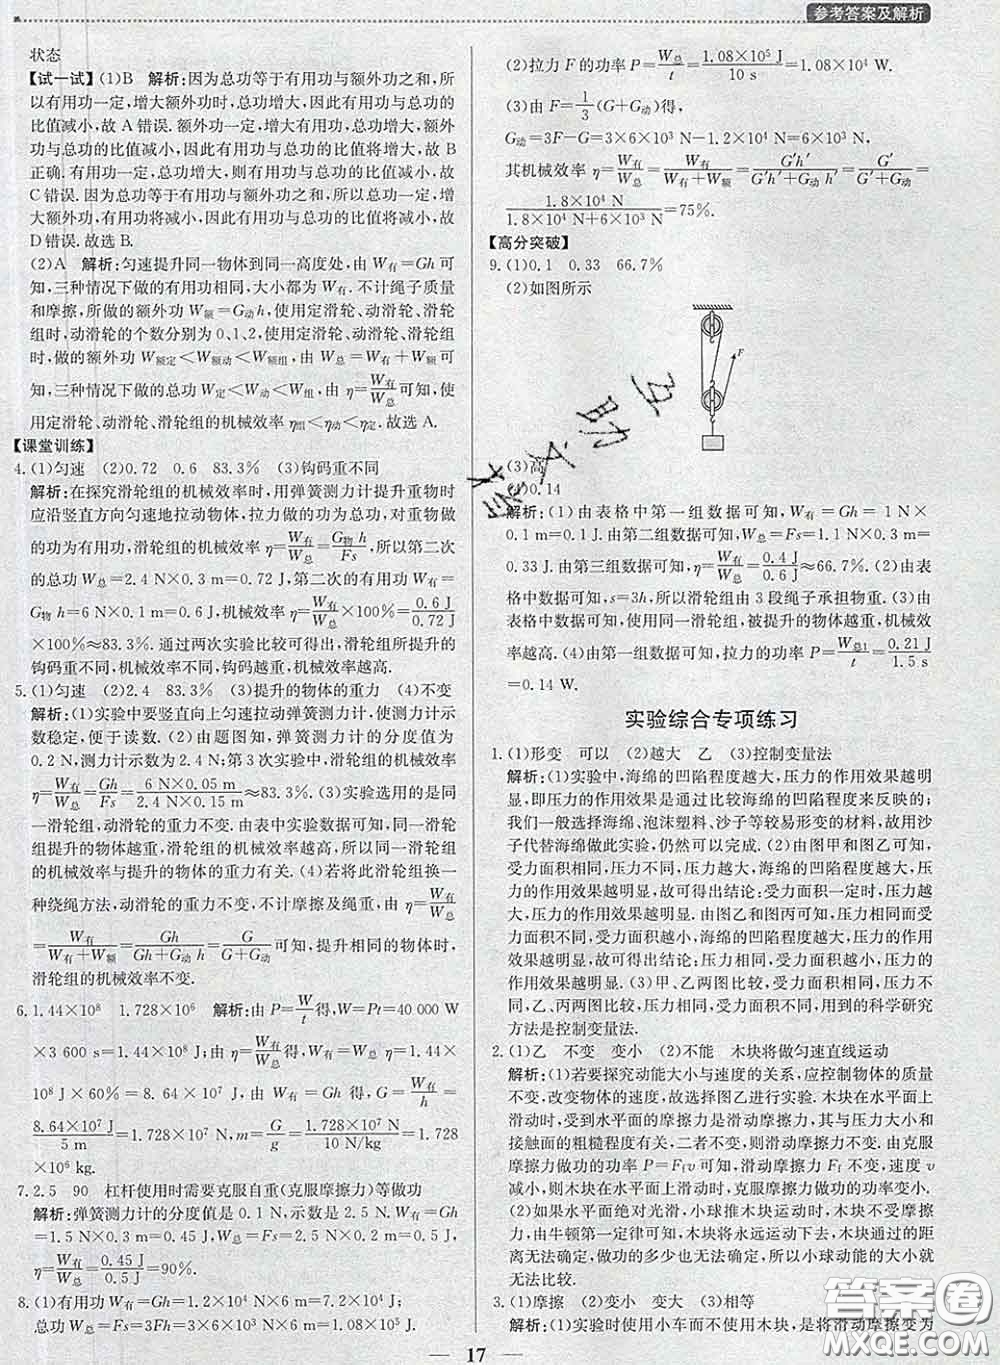 参考答案及解析
状态
【试一试】(1)B 解析:因为总功等于有用功与额外功之和,所
以有用功一定,增大额外功时,总功增大,因此有用功与总功的
比值减小,故 A 错误.额外功一定,增大有用功,总功增大,额外
功与总功的比值减小,因此有用功与总功的比值将增大,故 B
正确.有用功一定,增大总功,则有用功与总功的比值减小,故
C 错误.因为总功等于有用功与额外功之和,所以总功一定,增
大额外功,有用功将减小,因此有用功与总功的比值将减小,故
D 错误.故选 B.
(2)A 解析:匀速提升同一物体到同一高度处,由 W有=Gh可
知,三种情况下做的有用功相同,大小都为 W有.不计绳子质量
和摩擦,所做的额外功 W额=G动h,使用定滑轮、动滑轮、滑轮
组时,动滑轮的个数分别为 0、1、2,使用定滑轮、动滑轮、滑轮组
时,做的额外功 W额定<W额动<W额组,由 W总=W有+W额可
知,三种情况下做的总功 W总定<W总动<W总组,由 η=W有/W总可知,使
用定滑轮、动滑轮、滑轮组的机械效率 η组<η动<η定.故选 A.
【课堂训练】
4.(1)匀速 (2)0.72 0.6 83.3% (3)钩码重不同
解析:在探究滑轮组的机械效率时,用弹簧测力计提升重物时
应沿竖直方向匀速地拉动物体,拉力做的功为总功,对重物做
的功为有用功,滑轮组的机械效率 η=W有/W总=G物h/Fs,所以第二次
的总功 W总=2.4 N×0.3 m=0.72 J,第二次的有用功 W有=
G物h=6 N×0.1 m=0.6 J,机械效率 η=W有/W总×100%=0.6 J/0.72 J
×100%≈83.3%.通过两次实验比较可得出,滑轮组所提升的
钩码重不同,机械效率不同,钩码越重,机械效率越高.
5.(1)匀速 (2)2.4 83.3% (3)提升的物体的重力 (4)不变
解析:(1)实验中要竖直向上匀速拉动弹簧测力计,使测力计示
数稳定,便于读数.(2)由题图知,弹簧测力计的分度值为
0.2 N,测力计示数为 2.4 N;第 3 次实验中滑轮组的机械效率
η=W有/W总=Gh/Fs=6 N×0.05 m/2.4 N×0.15 m≈83.3%.(3)实验选用的是同
一滑轮组,动滑轮的重力不变.由表中实验数据可知,同一滑轮
组提升的物体越重,滑轮组的机械效率越高,所以同一滑轮组
的机械效率与提升的物体的重力有关.(4)若将此滑轮组换一
种绕绳方法,动滑轮的重力不变,不计摩擦及绳重,由 η=W有/W总
=W有/W有+W额=Gh/Gh+G动h=G/G+G动可知,提升相同的物体时,
滑轮组的机械效率不变.
6.1.44×10⁸ 1.728×10⁶ 解析:由 P=W/t得,W=Pt=40 000 W
×3 600 s=1.44×10⁸ J;由 η=W有/W总得,W有=W总η=1.44×
10⁸ J×60%=8.64×10⁷ J,由 W有=Gh 得,G=W有/h=
8.64×10⁷ J/5 m=1.728×10⁷ N,m=G/g=1.728×10⁷ N/10 N/kg=1.728
×10⁶ kg.
7.2.5 90 杠杆使用时需要克服自重(克服摩擦力)等做功
解析:弹簧测力计的分度值是 0.1 N,示数是 2.5 N.W有=Gh
=1.5 N×0.3 m=0.45 J,W总=Fs=2.5 N×0.2 m=0.5 J,
η=W有/W总=0.45 J/0.5 J=90%.
8.(1)有用功 W有=Gh=1.2×10⁴ N×6 m=7.2×10⁴ J;
总功 W总=Fs=3Fh=3×6×10³ N×6 m=1.08×10⁵ J.
(2)拉力 F 的功率 P=W总/t=1.08×10⁵ J/10 s=1.08×10⁴ W.
(3)由 F=1/3(G+G动)得,
G动=3F-G=3×6×10³ N-1.2×10⁴ N=6×10³ N,
其机械效率 η=W有/W总=W有/W有+W额=G′h′/G′h′+G动h′=G′/G′+G动=
1.8×10⁴ N/1.8×10⁴ N+6×10³ N=75%.
【高分突破】
9.(1)0.1 0.33 66.7%
(2)如图所示
F
(3)高
(4)0.14
解析:(1)由表格中第一组数据可知,W有=Gh=1 N×
0.1 m=0.1 J.由第二组数据可知,W总=Fs=1.1 N×0.3 m=
0.33 J.由第三组数据可知,η=W有/W总=0.4 J/0.6 J≈66.7%.(2)由表
格中数据可知,s=3h,所以滑轮组由 3 段绳子承担物重.(3)由
表格中数据可知,使用同一滑轮组,被提升的物体越重,机械效
率越高.(4)由第一组数据可知,拉力的功率 P=W总1/t=0.21 J/1.5 s
=0.14 W.
实验综合专项练习
1.(1)形变 可以 (2)越大 乙 (3)控制变量法
解析:(1)实验中,海绵的凹陷程度越大,压力的作用效果越明
显,即压力的作用效果是通过比较海绵的凹陷程度来反映的;
我们一般选择海绵、泡沫塑料、沙子等较易形变的材料,故用沙
子代替海绵做此实验,仍然可以完成.(2)由图甲和图乙可知,
受力面积相同,压力不同,压力越大,海绵的凹陷程度越大,压力
的作用效果越明显,故可得出结论:受力面积一定时,压力越
大,压力的作用效果越明显.由图乙和图丙可知,压力相同而受
力面积不同,受力面积越小,海绵的凹陷程度越大,压力的作用
效果越明显,故可得出结论:压力一定时,受力面积越小,压力的
作用效果越明显.(3)甲、乙两图比较,受力面积相同,压力不
同,乙、丙两图比较,压力相同,受力面积不同,用到的科学研究
方法是控制变量法.
2.(1)乙 不变 变小 (2)不能 木块将做匀速直线运动
解析:(1)若要探究动能大小与速度的关系,应控制物体的质量
不变,改变物体的速度,故选择图乙进行实验.木块在水平面上
滑动时,受到水平面的摩擦力是滑动摩擦力,其与压力大小和
接触面的粗糙程度有关,二者不变,则滑动摩擦力不变.由克服
摩擦力做功的功率 P=Ffv 可知,滑动摩擦力不变,速度 v
减小,则木块在水平面上滑动过程中,克服摩擦力做功的功率变小.
(2)如果水平面绝对光滑,小球推木块运动时,木块不受摩擦
力,由牛顿第一定律可知,木块将永远运动下去,木块通过的距
离无法确定,做功的多少也无法确定,所以小球动能的大小就
无法比较.
3.(1)摩擦 (2)变小 变大 (3)相等
解析:(1)实验时使用小车而不使用木块,是将滑动摩擦变为
17
答案圈
MXQE.COM